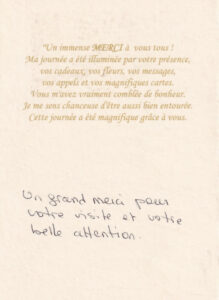 "Un immense MERCI à vous tous !
Ma journée a été illuminée par votre présence,
vos cadeaux, vos fleurs, vos messages,
vos appels et vos magnifiques cartes.
Vous m'avez vraiment comblée de bonheur.
Je me sens chanceuse d'être aussi bien entourée.
Cette journée a été magnifique grâce à vous.
Un grand merci pour
votre visite et votre
belle attention.